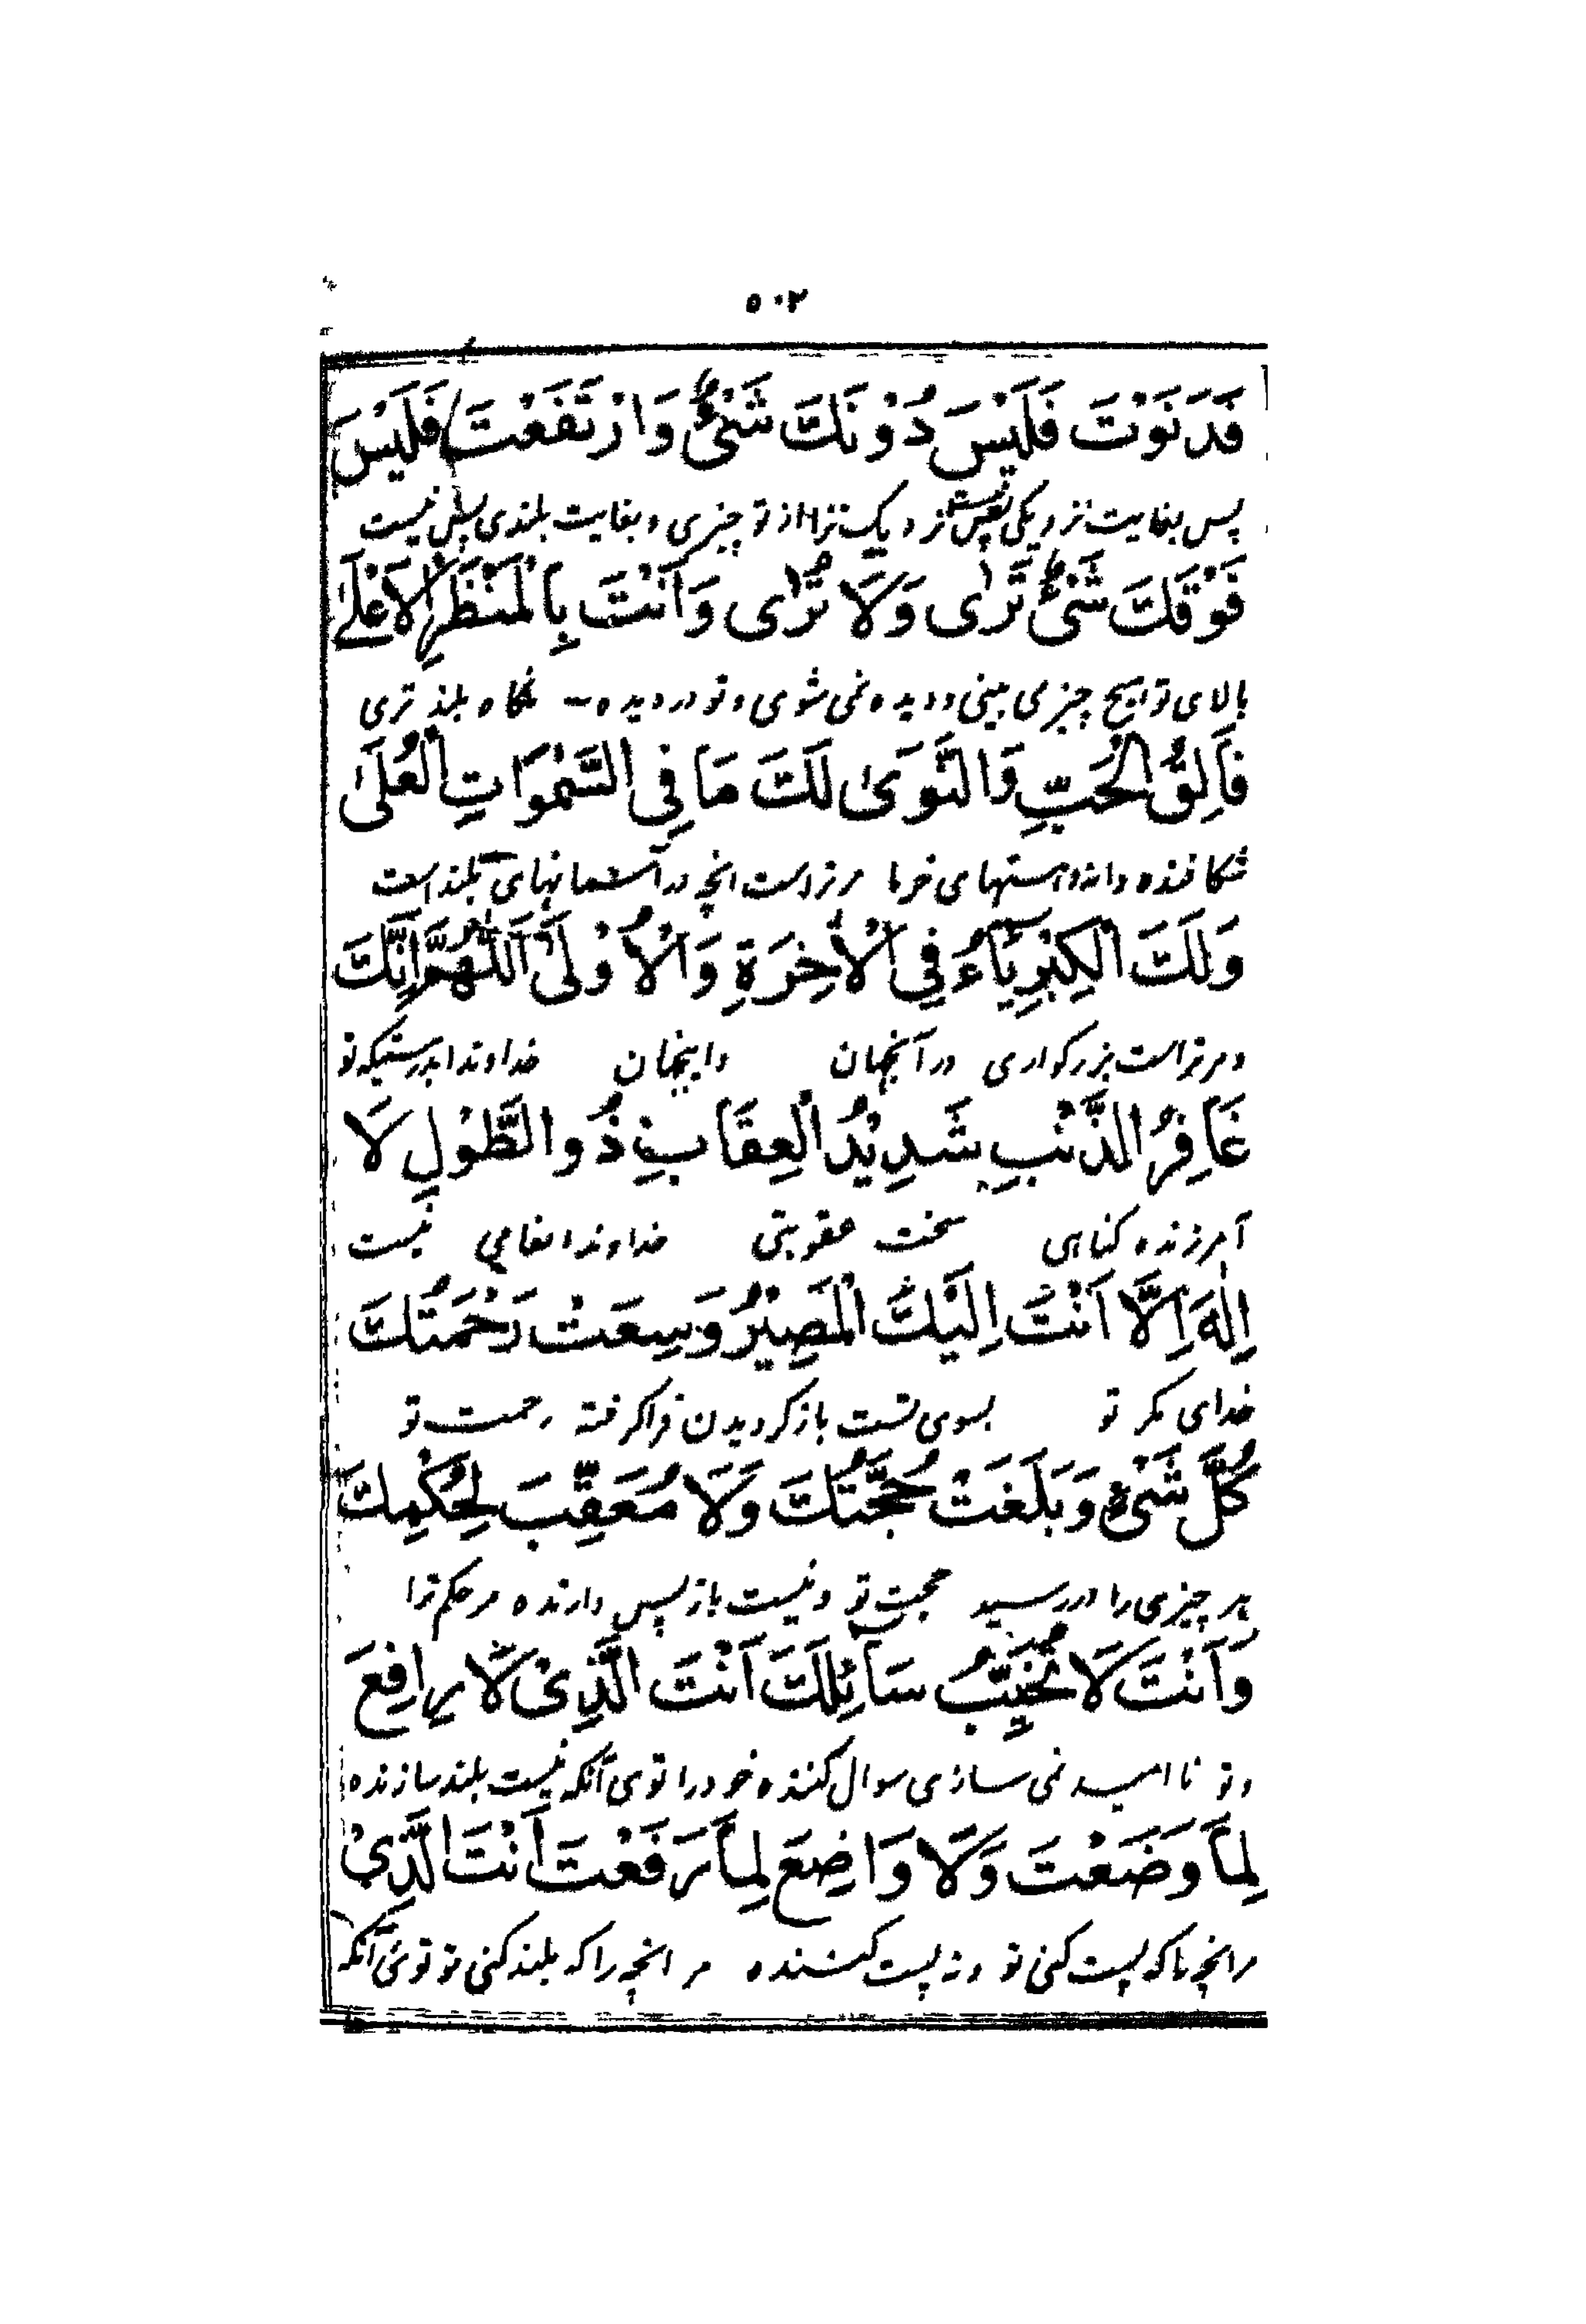 ۵۰۲
فَدَنَوْتَ فَلَيْسَ دُوْنَكَ شَيْءٌ وَارْتَفَعْتَ فَلَيْسَ
پس بغایت نزدیکی پس نیست نزدیک تر از تو چیزی و بغایت بلندی پس نیست
فَوْقَكَ شَيْءٌ تَرٰى وَلَا تُرٰى وَاَنْتَ بِالْمَنْظَرِ الْاَعْلٰى
بالای تو هیچ چیزی بینی و دیده نمی شوی و تو در دیده نگاه بلند تری
فَالِقُ الْحَبِّ وَالنَّوَىٰ لَكَ مَا فِي السَّمٰوَاتِ الْعُلَىٰ
شکافنده دانه و استهای خرما مر تراست انچه در آسمانهای بلند است
وَلَكَ الْكِبْرِيَاءُ فِي الْاٰخِرَةِ وَالْاُوْلَىٰ اَللّٰهُمَّ اِنَّكَ
و مر تراست بزرکواری در آنجهان و اینجهان خداوندا بدرستیکه تو
غَافِرُ الذَّنْبِ شَدِيْدُ الْعِقَابِ ذُو الطَّوْلِ لَا
آمرزنده کناهی سخت عقوبتی خداوند انعامی نیست
اِلٰهَ اِلَّا اَنْتَ اِلَيْكَ الْمَصِيْرُ وَسِعَتْ رَحْمَتُكَ
خدای مکر تو بسوی تست بازکردیدن فراکرفته رحمت تو
كُلَّ شَيْءٍ وَبَلَغَتْ حُجَّتُكَ وَلَا مُعَقِّبَ لِحُكْمِكَ
هر چیزی را و رسید حجت تو و نیست باز پس دارنده مر حکم ترا
وَاَنْتَ لَا تُخَيِّبُ سَائِلَكَ اَنْتَ الَّذِىْ لَا رَافِعَ
و تو ناامید نمی سازی سوال کننده خود را توی آنکه نیست بلند سازنده
لِمَا وَضَعْتَ وَلَا وَاضِعَ لِمَا رَفَعْتَ اَنْتَ الَّذِيْ
مر انچه را که پست کنی تو و نه پست کننده مر انچه را که بلند کنی تو توئی آنکه